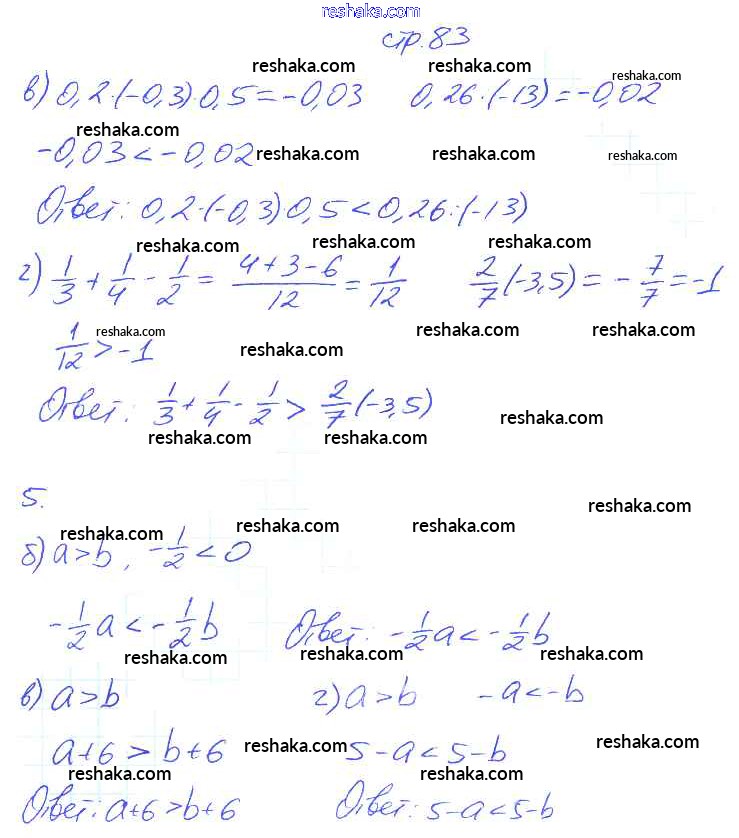 reshaka.com
стр.83
reshaka.com reshaka.com reshaka.com
в) 0,2·(-0,3)·0,5=-0,03 0,26·(-13)=-0,02
reshaka.com
-0,03<-0,02 reshaka.com reshaka.com reshaka.com
Ответ: 0,2·(-0,3)0,5<0,26:(-13)
reshaka.com reshaka.com reshaka.com
г) 1/3+1/4-1/2=(4+3-6)/12=1/12 2/7(-3,5)=-7/7=-1
reshaka.com reshaka.com reshaka.com
1/12>-1 reshaka.com reshaka.com
Ответ: 1/3+1/4-1/2>2/7(-3,5) reshaka.com
reshaka.com reshaka.com
5. reshaka.com
reshaka.com reshaka.com reshaka.com
б) a>b, -1/2<0
-1/2a<-1/2b Ответ: -1/2a<-1/2b
reshaka.com reshaka.com reshaka.com
в) a>b г) a>b -a<-b
a+6>b+6 reshaka.com 5-a<5-b reshaka.com
reshaka.com reshaka.com reshaka.com
Ответ: a+6>b+6 Ответ: 5-a<5-b